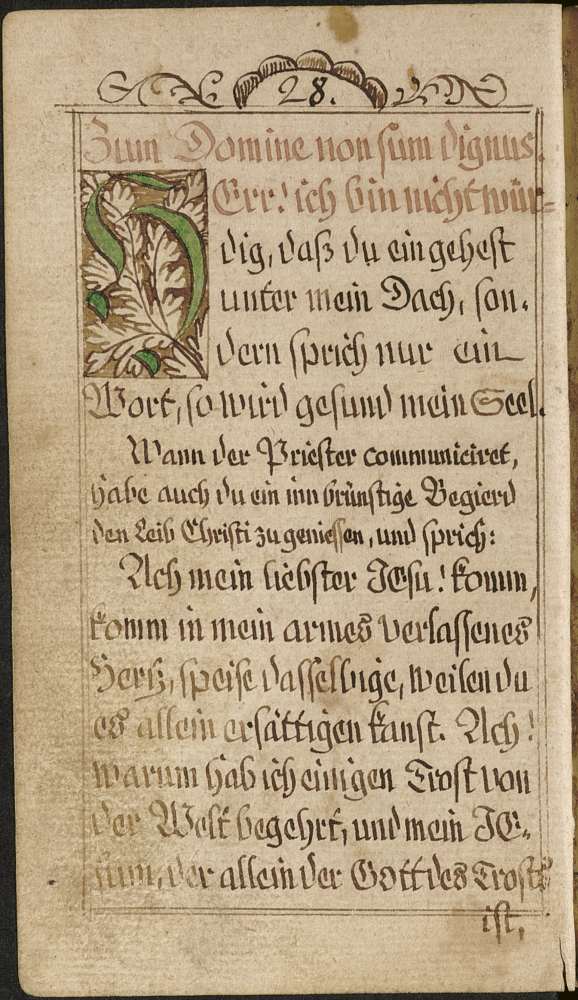 28.
Zum Domine non sum dignus.
HErr! ich bin nicht wür=
dig, daß du eingehest
unter mein Dach, son=
dern sprich nur ein
Wort, so wird gesund mein Seel.
Wann der Priester communiciret,
habe auch du ein innbrünstige Begierd
den Leib Christi zu geniessen, und sprich:
Ach mein liebster JEsu! komm,
komm in mein armes verlassenes
Hertz, speise dasselbige, weilen du
es allein ersättigen kanst. Ach!
warum hab ich einigen Trost von
der Welt begehrt, und mein JE=
sum, der allein der Gott des Trosts
ist,